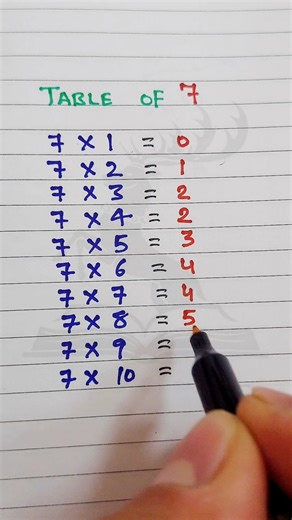 TABLE OF 7
7 × 1 = 0
7 × 2 = 1
7 × 3 = 2
7 × 4 = 2
7 × 5 = 3
7 × 6 = 4
7 × 7 = 4
7 × 8 = 5
7 × 9 =
7 × 10 =